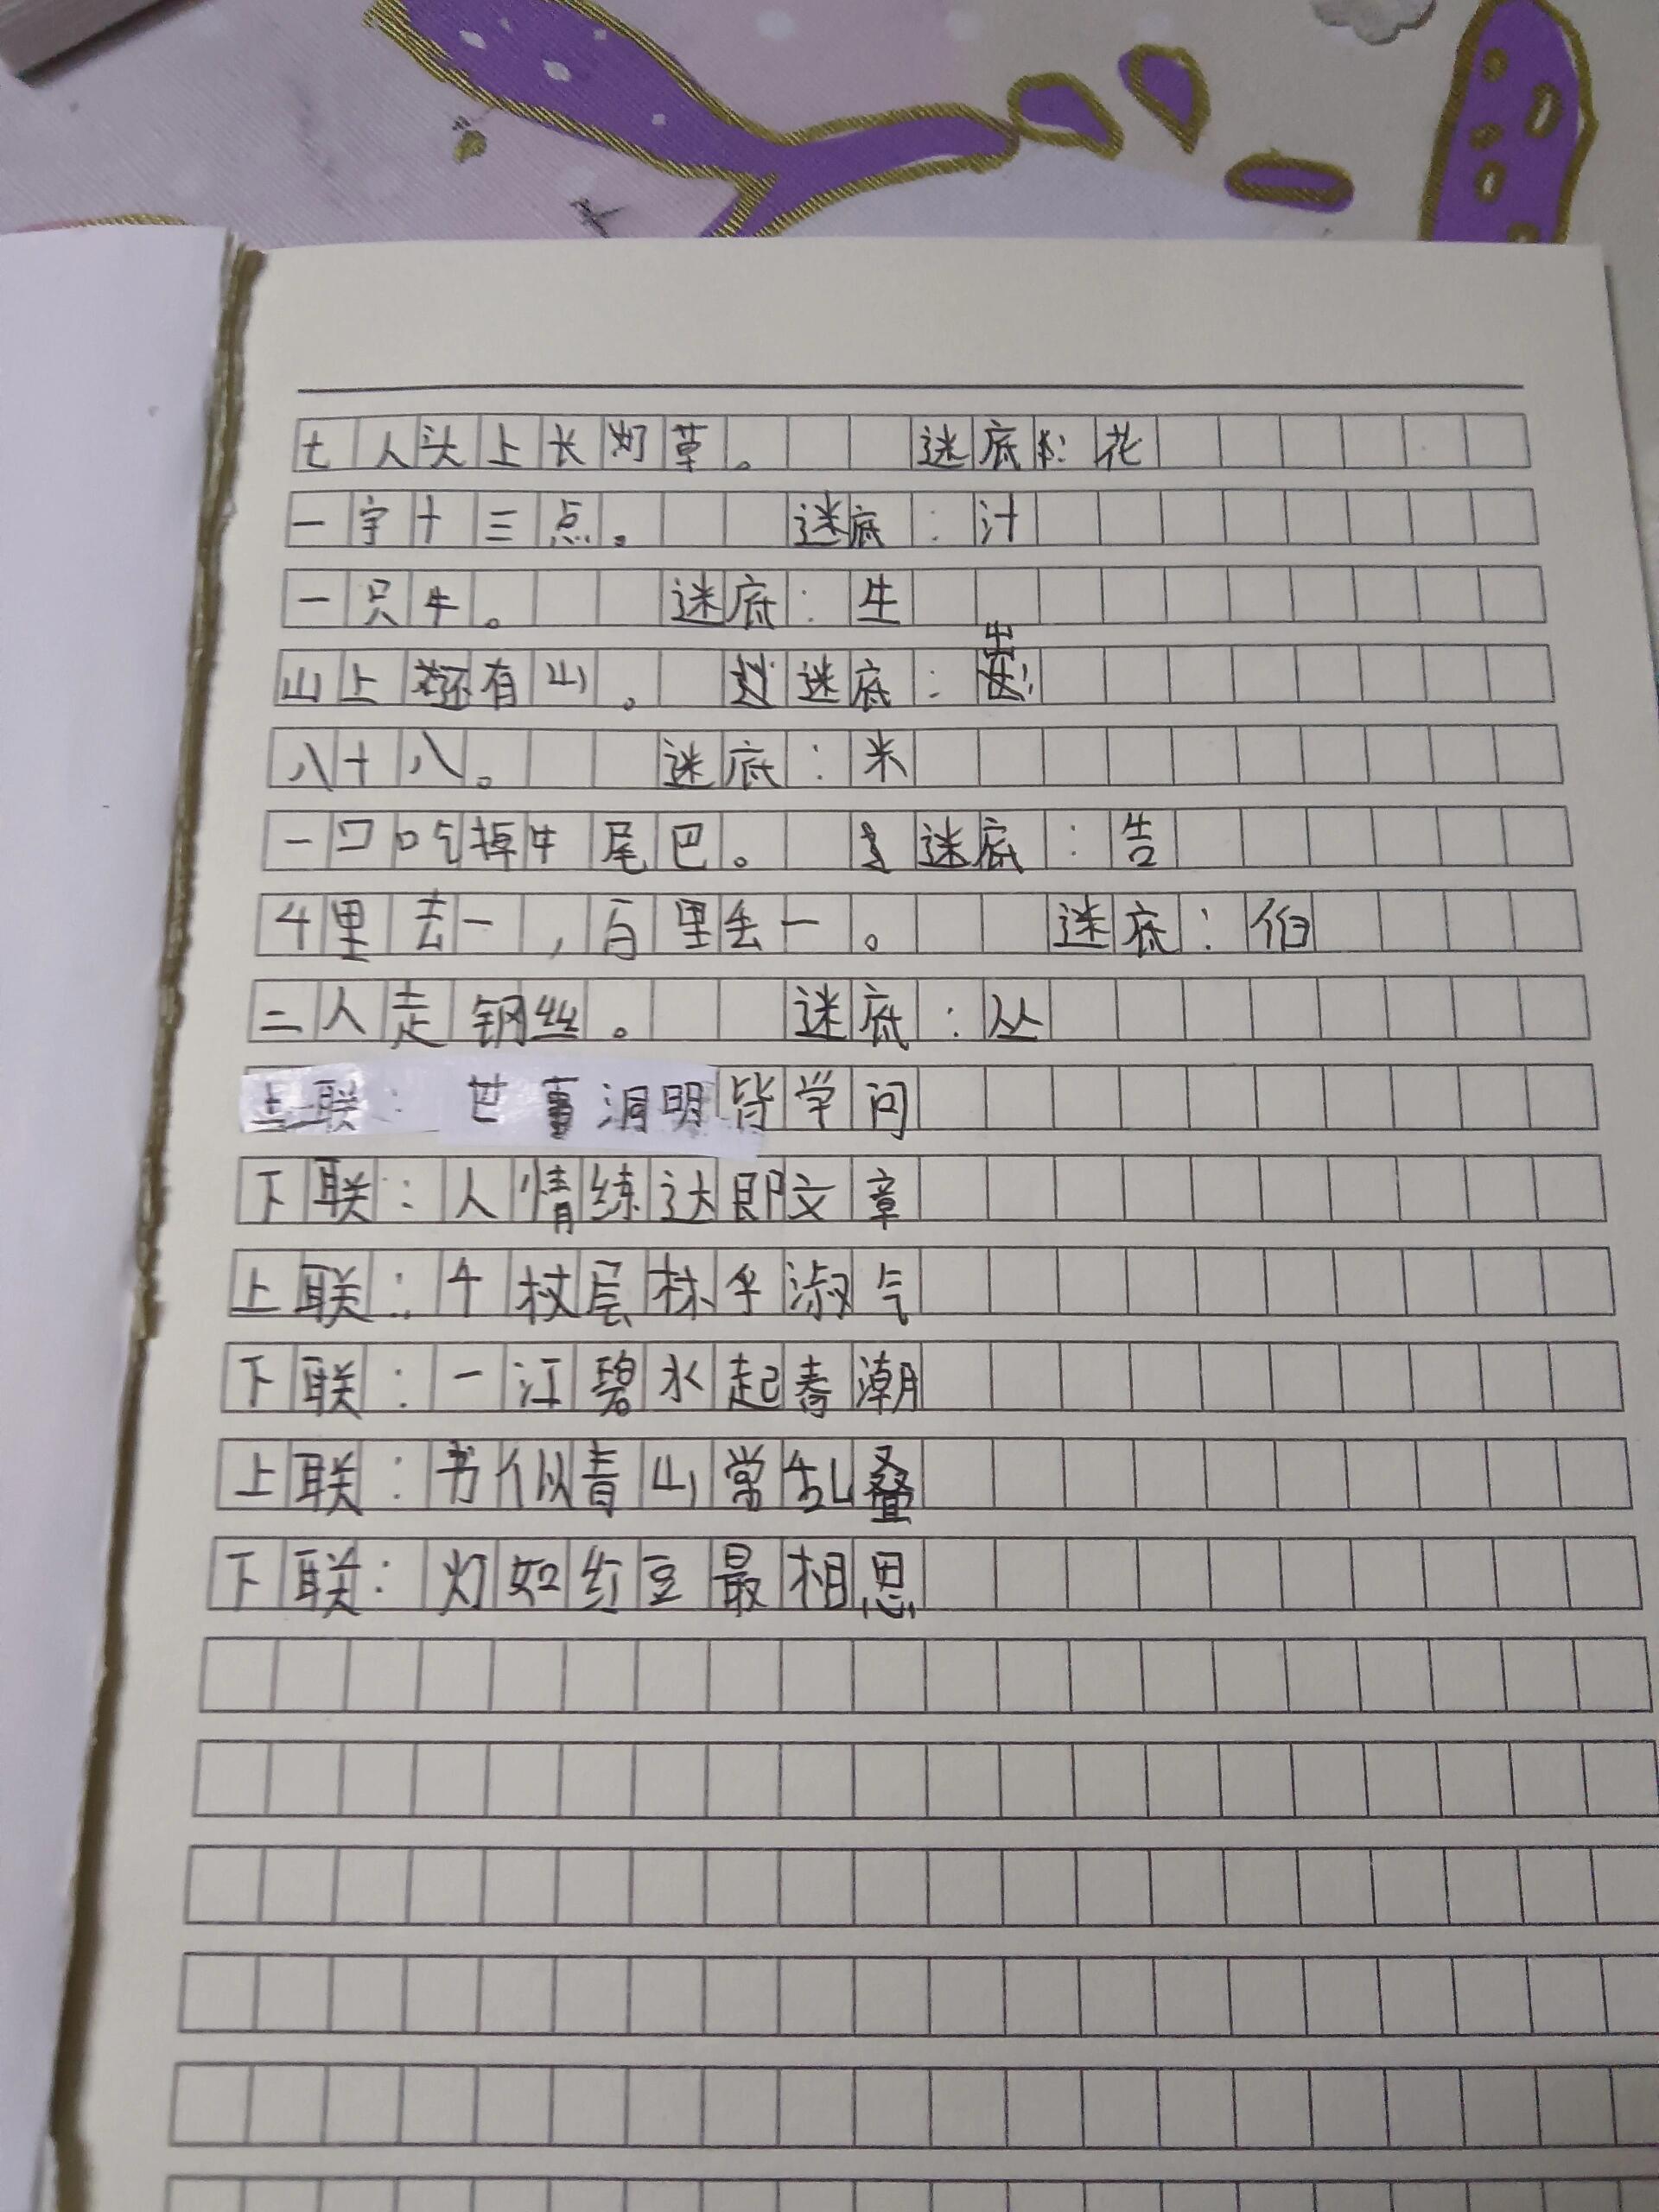 七人头上长草。 迷底：花
一字十三点。 迷底：汁
一只牛。 迷底：生
山上还有山。 迷底：出
八十八。 迷底：米
一口吃掉牛尾巴。 迷底：告
千里去一，百里去一。 迷底：伯
二人走钢丝。 迷底：丛
上联：世事洞明皆学问
下联：人情练达即文章
上联：千层林乎淑气
下联：一江碧水起春潮
上联：书似青山常乱叠
下联：灯如红豆最相思